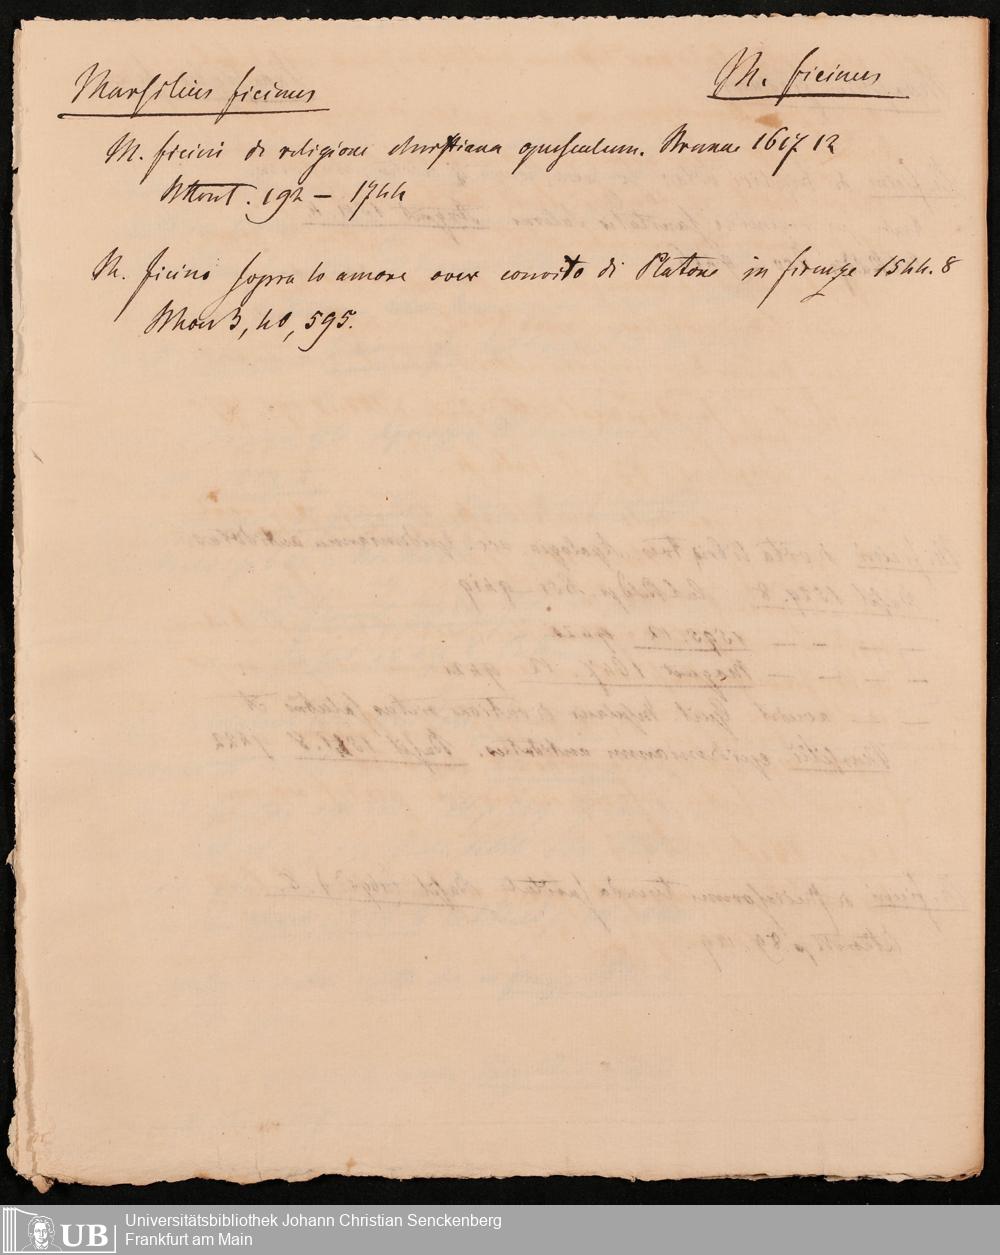 Marsilius ficinus
M. ficinus
M. ficini de religione christiana opusculum. 1617 12
192 – 1744
M. ficino sopra lo amore over convito di Platone in firenze 1544. 8
3, 40, 595.
Universitätsbibliothek Johann Christian Senckenberg
Frankfurt am Main
UB